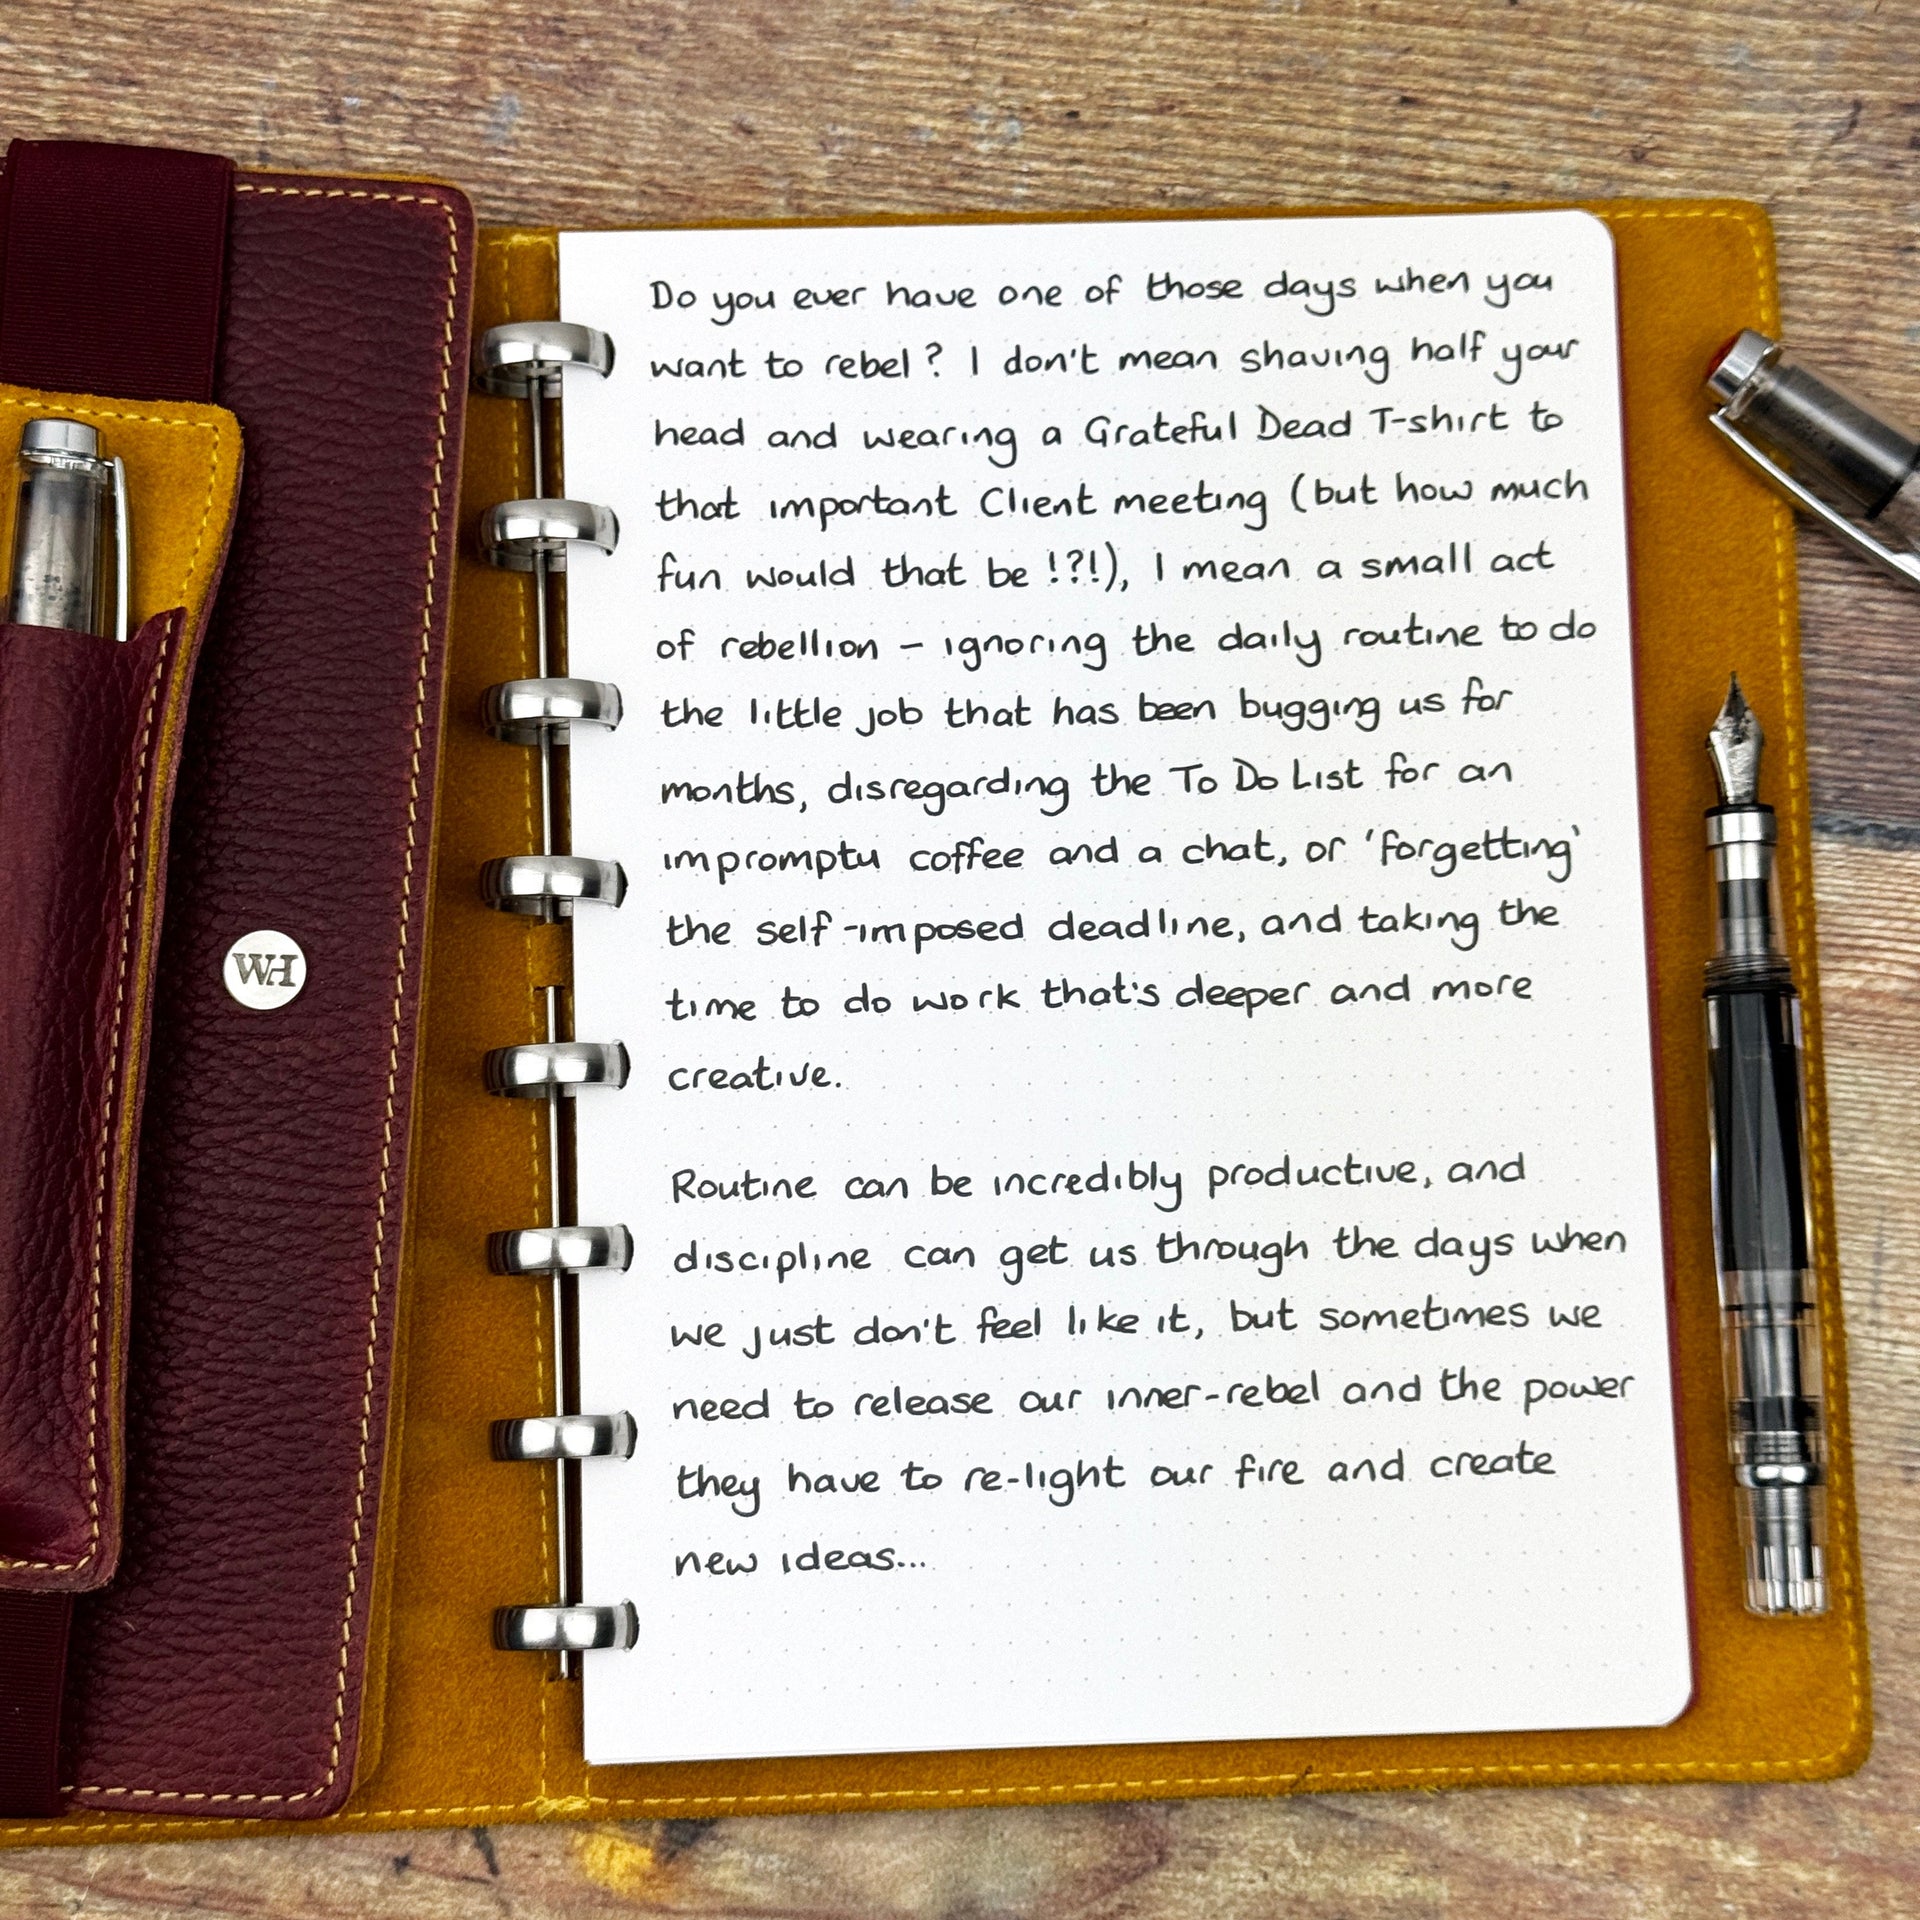 Do you ever have one of those days when you
want to rebel? I don't mean shaving half your
head and wearing a Grateful Dead T-shirt to
that important Client meeting (but how much
fun would that be !?!), I mean a small act
of rebellion – ignoring the daily routine to do
the little job that has been bugging us for
months, disregarding the To Do List for an
impromptu coffee and a chat, or 'forgetting'
the self-imposed deadline, and taking the
time to do work that's deeper and more
creative.
Routine can be incredibly productive, and
discipline can get us through the days when
we just don't feel like it, but sometimes we
need to release our inner-rebel and the power
they have to re-light our fire and create
new ideas...
WH